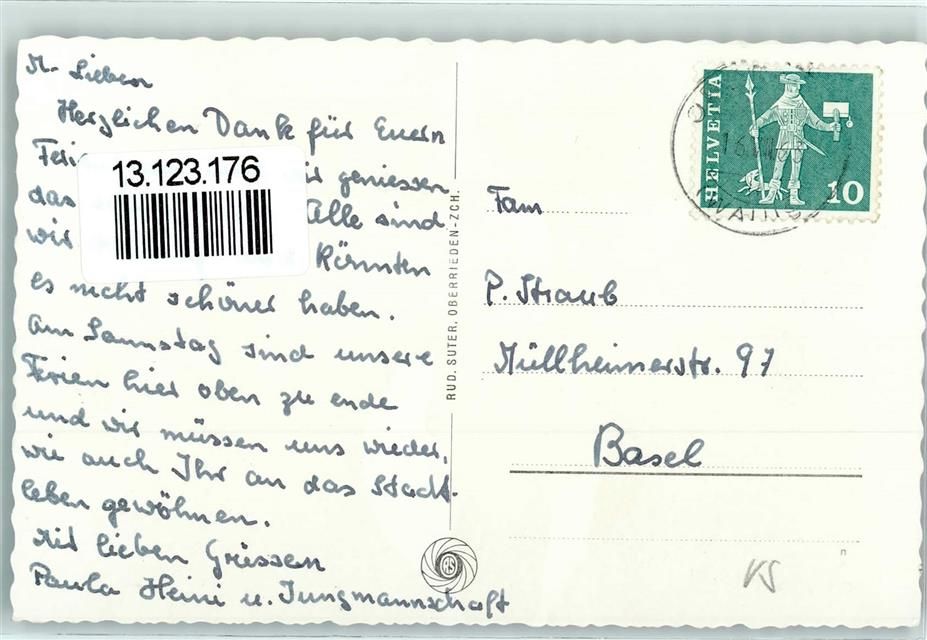 Lieben
Herzlichen Dank für Euern
13.123.176
geniessen
das Alle sind
wir Könnten
es nicht schöner haben.
Am Samstag sind unsere
Ferien hier oben zu ende
und wir müssen uns wieder,
wie auch Ihr an das Stadt-
leben gewöhnen.
Mit lieben Grüssen
Paula Heini u. Jungmannschaft
RUD. SUTER, OBERRIEDEN-ZCH.
HELVETIA
10
Fam
P. Straub
Müllheimerstr. 97
Basel
KS